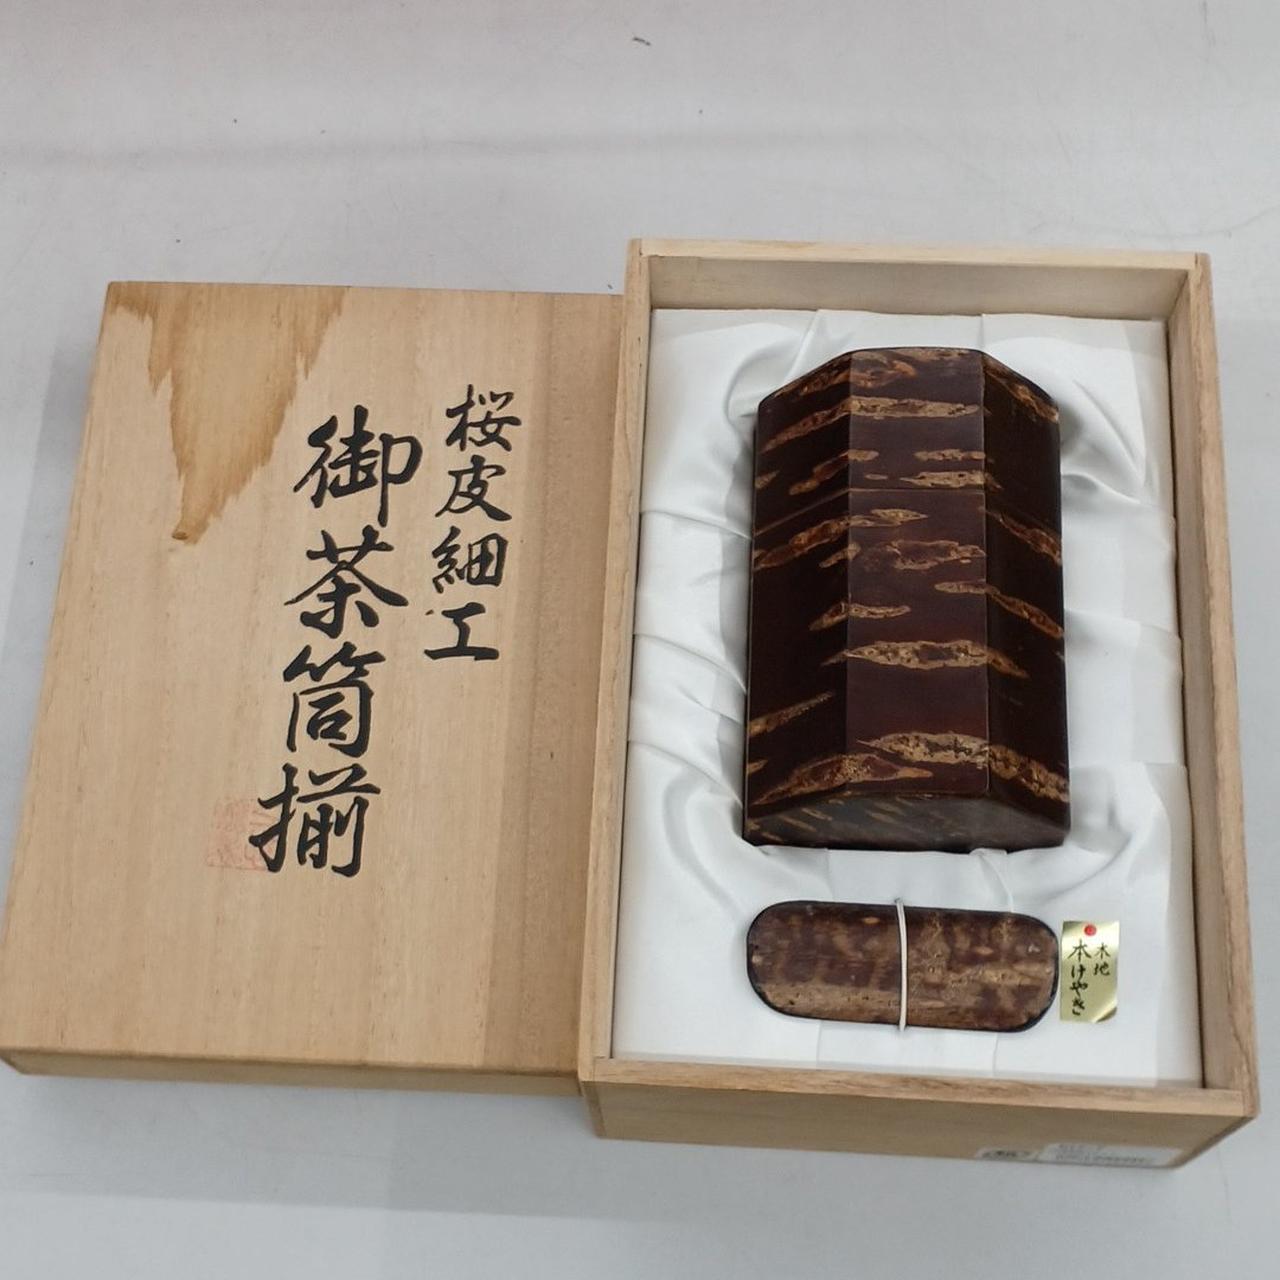 桜皮細工
御茶筒揃
木地
本けやき